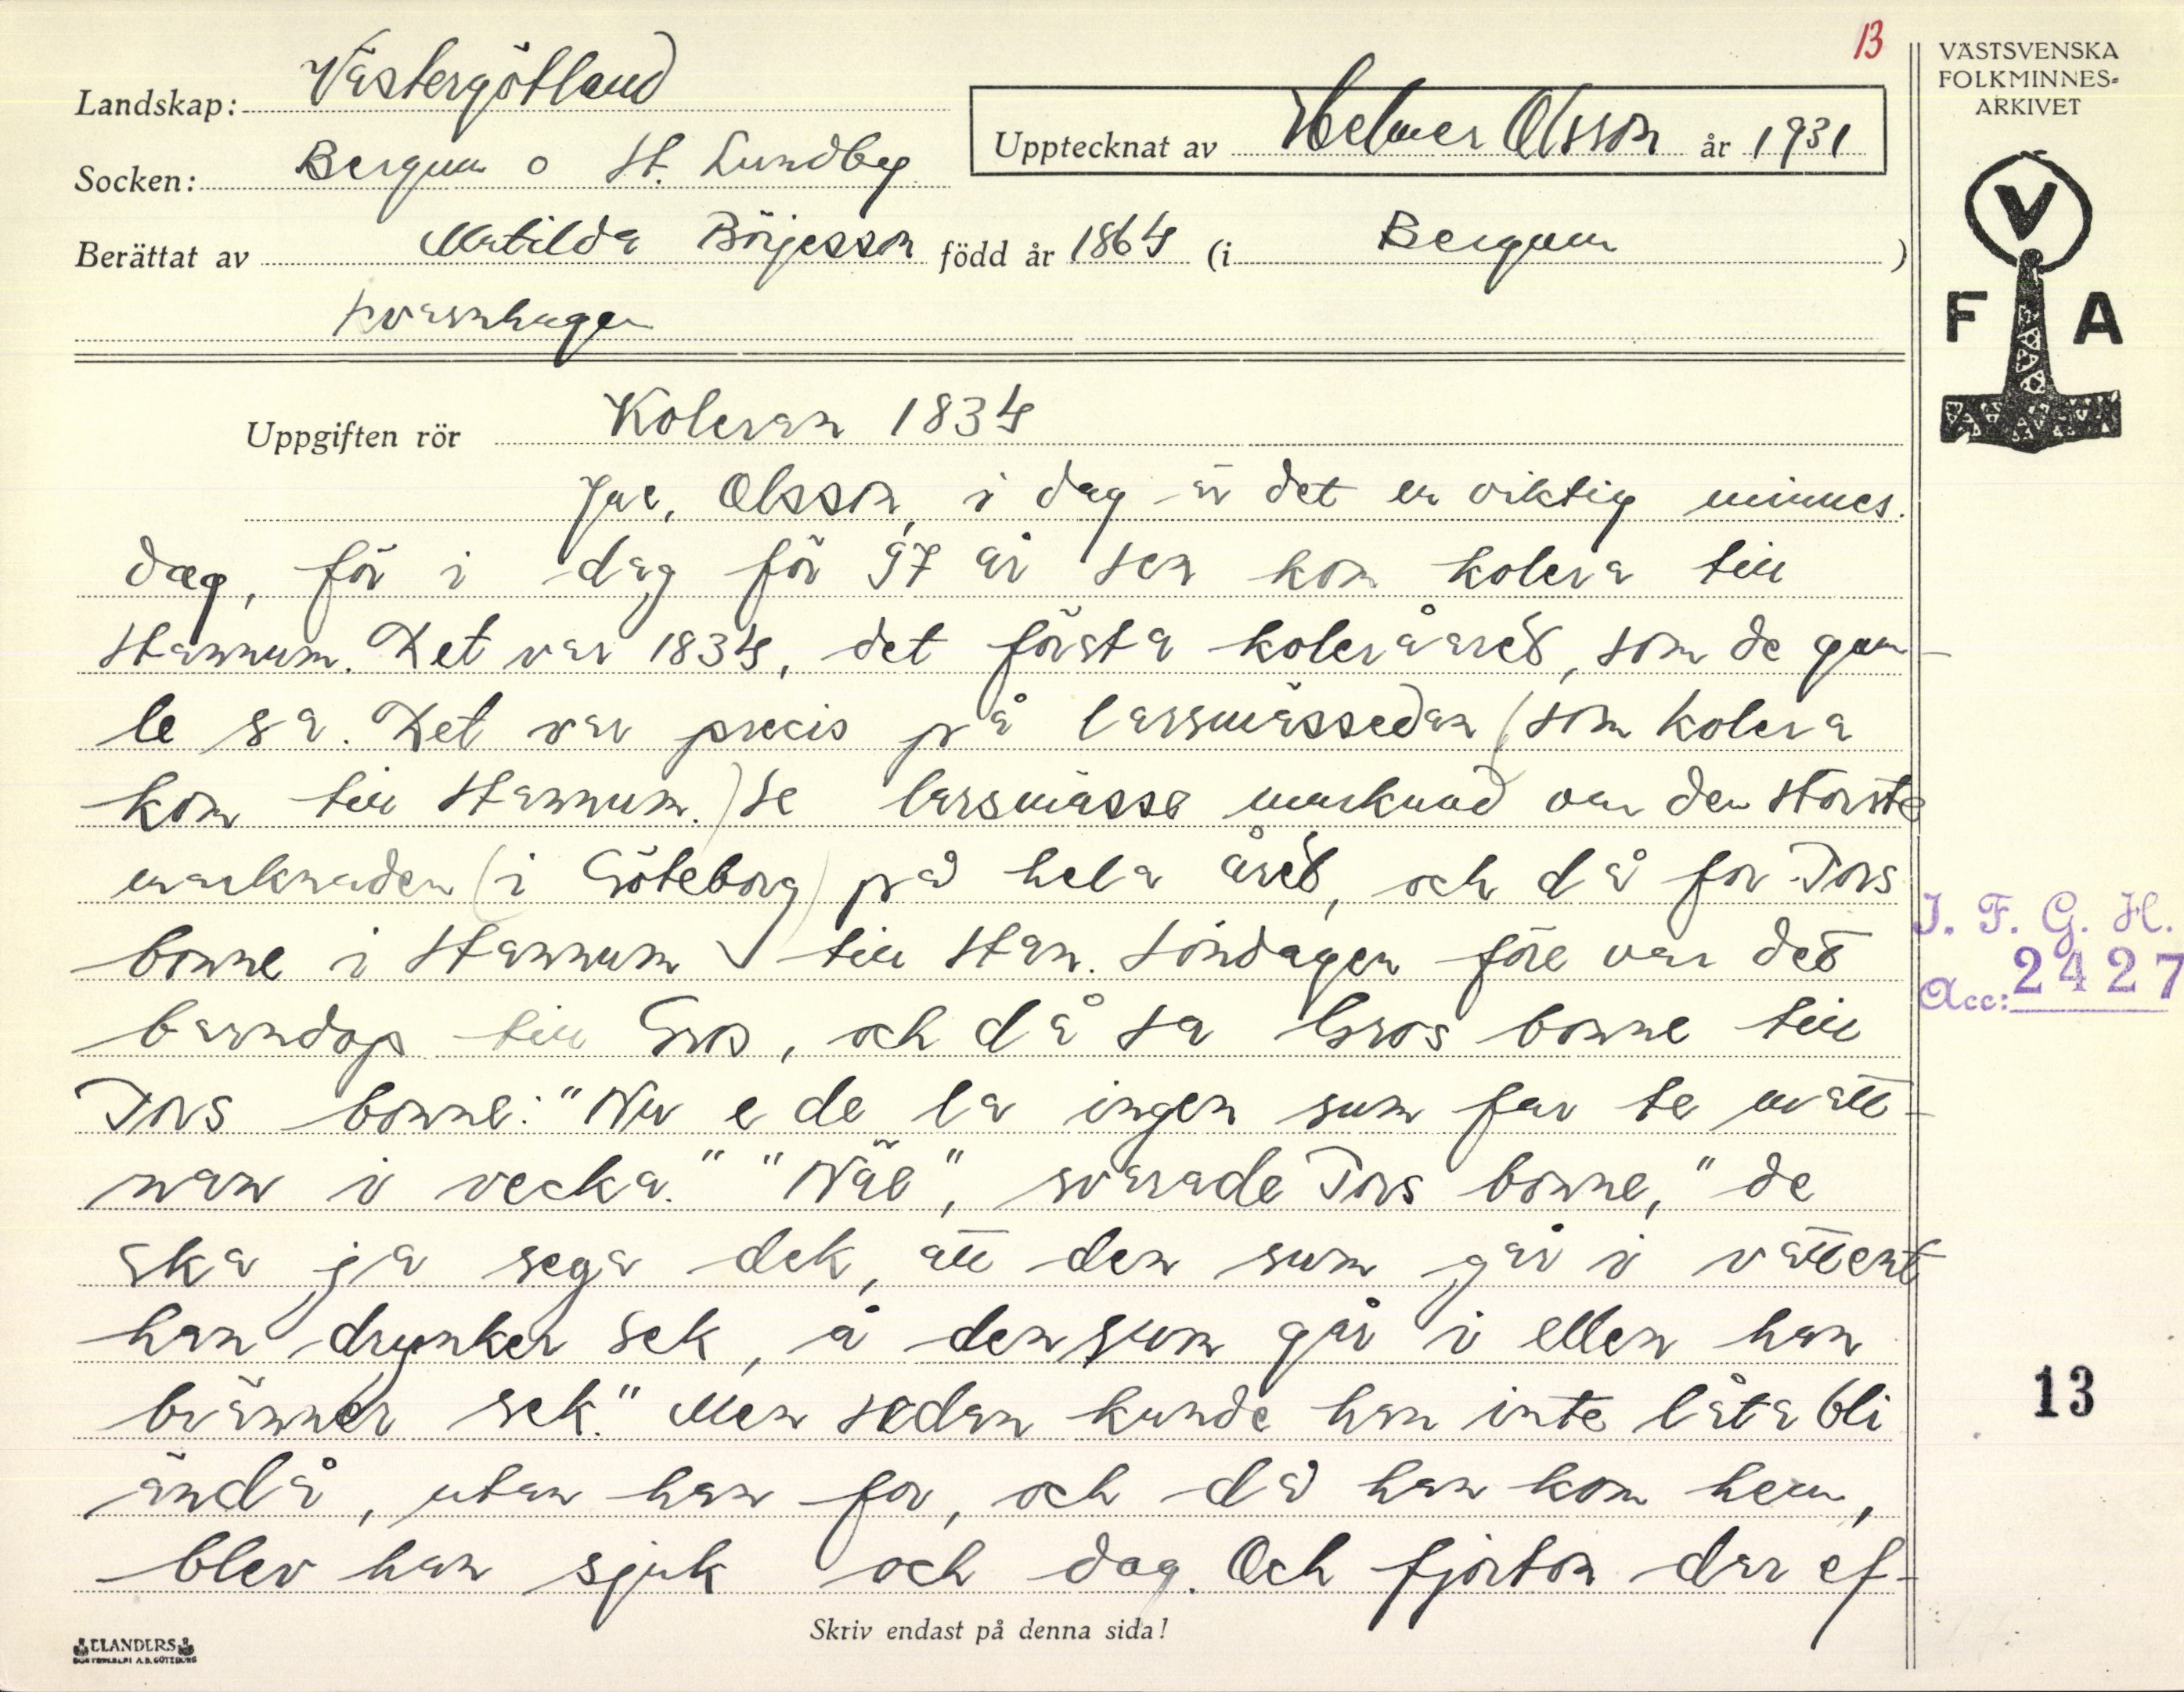 13
VÄSTSVENSKA
FOLKMINNES-
ARKIVET
Landskap: Västergötland
Upptecknat av Helmer Olsson år 1931
Socken: Bergum o St. Lundby
Berättat av Matilda Börjesson född år 1864 (i Bergum)
kvarnhagen
V
F A
Uppgiften rör Koleran 1834
Jae, Olsson, i dag är det en viktig minnes-
dag, för i dag för 97 år sen kom kolera till
Stannum. Det var 1834, det första koleraåret, som de gam-
le sa. Det var precis på larsmässedan (som kolera
kom till Stannum.) Se larsmässe marknad var den störste
marknaden (i Göteborg) på hela året, och då for Tors
bonne i Stannum till stan. Söndagen före var det
barndop till Gros, och då sa Gros bonne till
Tors bonne: "Nu e de la ingen sum far te mark-
nan i vecka." "Näe", svarade Tors bonne, "de
ska ja sega dek, att den sum går i vattent
han drynker sek, å den sum går i ellen han
bränner sek." Men sedan kunde han inte låta bli
ändå, utan han for, och då han kom hem,
blev han sjuk och dog. Och fjorton dar ef-
J. F. G. H.
Acc: 2427
13
Skriv endast på denna sida!
ELANDERS
BOKTRYCKERI A.B. GÖTEBORG